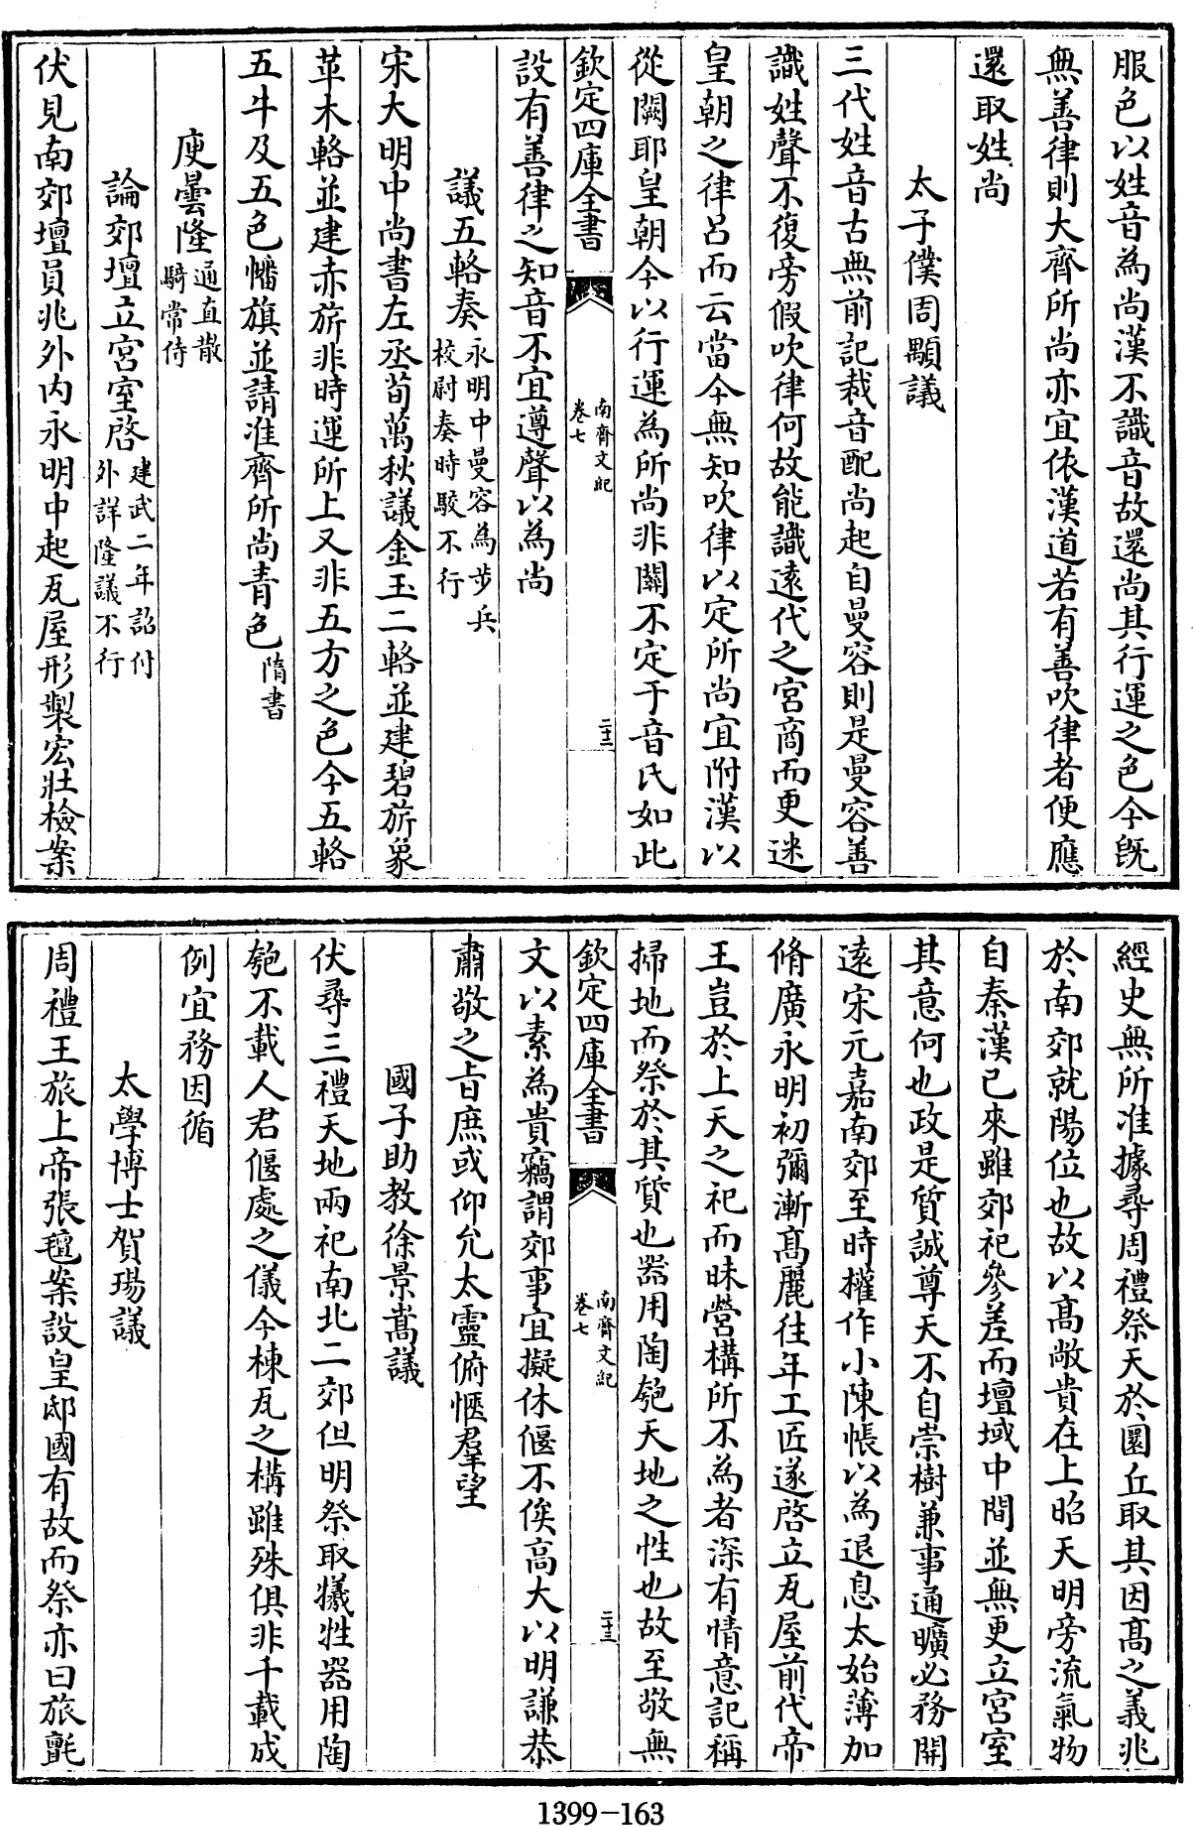 服色以姓音為尚漢不識音故還尚其行運之色今既
無善律則大齊所尚亦宜依漢道若有善吹律者便應
還取姓尚
太子僕周顒議
三代姓音古無前記裁音配尚起自曼容則是曼容善
識姓聲不復旁假吹律何故能識遠代之宮商而更迷
皇朝之律呂而云當今無知吹律以定所尚宜附漢以
從闕耶皇朝今以行運為所尚非關不定于音氏如此
欽定四庫全書
南齊文紀
卷七
二十二
設有善律之知音不宜遵聲以為尚
議五輅奏永明中曼容為步兵
校尉奏時駮不行
宋大明中尚書左丞荀萬秋議金玉二輅並建碧旂象
革木輅並建赤旂非時運所上又非五方之色今五輅
五牛及五色幡旗並請准齊所尚青色隋書
庾曇隆通直散
騎常侍
論郊壇立宮室啓建武二年詔付
外詳隆議不行
伏見南郊壇員兆外内永明中起瓦屋形製宏壯檢案
經史無所准據尋周禮祭天於圜丘取其因高之義兆
於南郊就陽位也故以高敞貴在上昭天明旁流氣物
自秦漢已來雖郊祀參差而壇域中間並無更立宮室
其意何也政是質誠尊天不自崇樹兼事通曠必務開
遠宋元嘉南郊至時權作小陳帳以為退息太始薄加
脩廣永明初彌漸高麗往年工匠遂啓立瓦屋前代帝
王豈於上天之祀而昧營構所不為者深有情意記稱
掃地而祭於其質也器用陶匏天地之性也故至敬無
欽定四庫全書
南齊文紀
卷七
二十三
文以素為貴竊謂郊事宜擬休偃不俟高大以明謙恭
肅敬之旨庶或仰允太靈俯愜羣望
國子助教徐景嵩議
伏尋三禮天地兩祀南北二郊但明祭取犧牲器用陶
匏不載人君偃處之儀今棟瓦之構雖殊俱非千載成
例宜務因循
太學博士賀瑒議
周禮王旅上帝張氊案設皇邸國有故而祭亦曰旅氈
1399-163